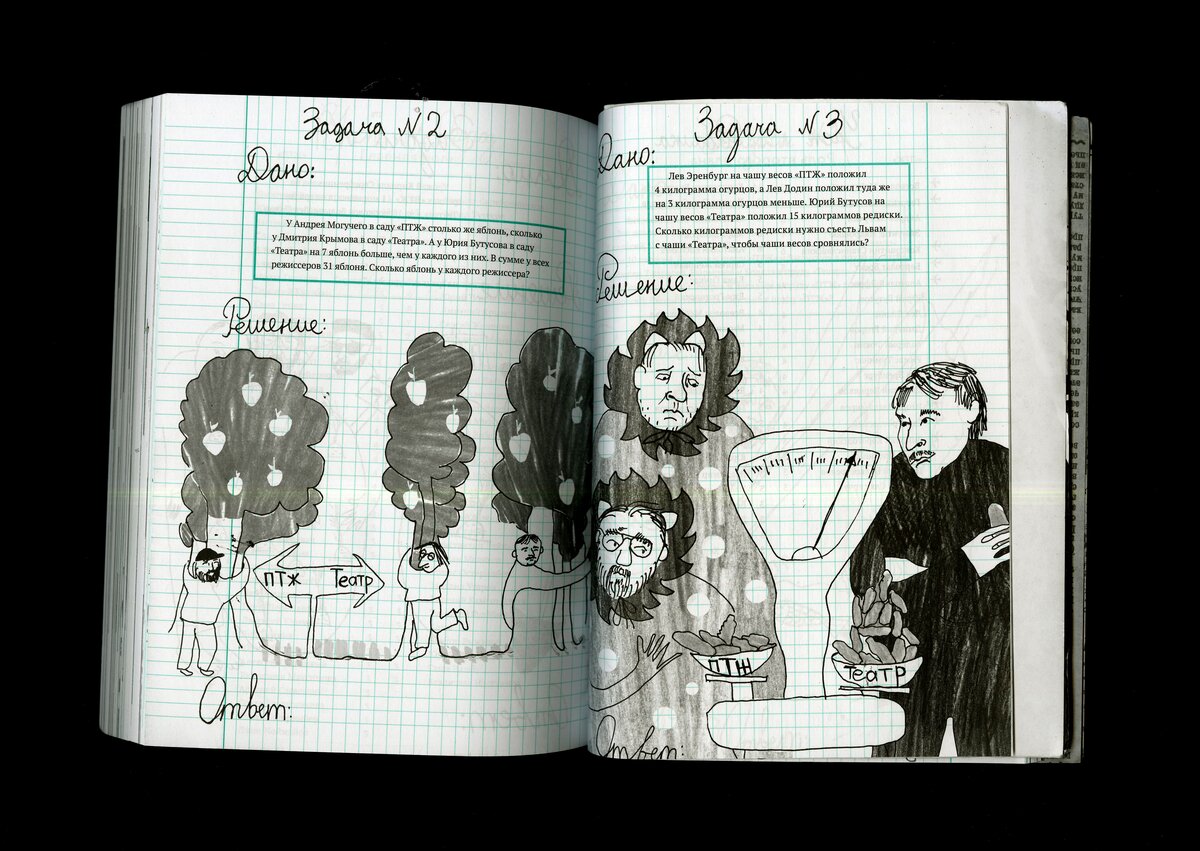 Задача №2
Дано:
У Андрея Могучего в саду «ПТЖ» столько же яблонь, сколько
у Дмитрия Крымова в саду «Театра». А у Юрия Бутусова в саду
«Театра» на 7 яблонь больше, чем у каждого из них. В сумме у всех
режиссеров 31 яблоня. Сколько яблонь у каждого режиссера?
Решение:
ПТЖ
Театр
Ответ:
Задача №3
Дано:
Лев Эренбург на чашу весов «ПТЖ» положил
4 килограмма огурцов, а Лев Додин положил туда же
на 3 килограмма огурцов меньше. Юрий Бутусов на
чашу весов «Театра» положил 15 килограммов редиски.
Сколько килограммов редиски нужно съесть Львам
с чаши «Театра», чтобы чаши весов сровнялись?
Решение:
ПТЖ
Театр
Ответ: